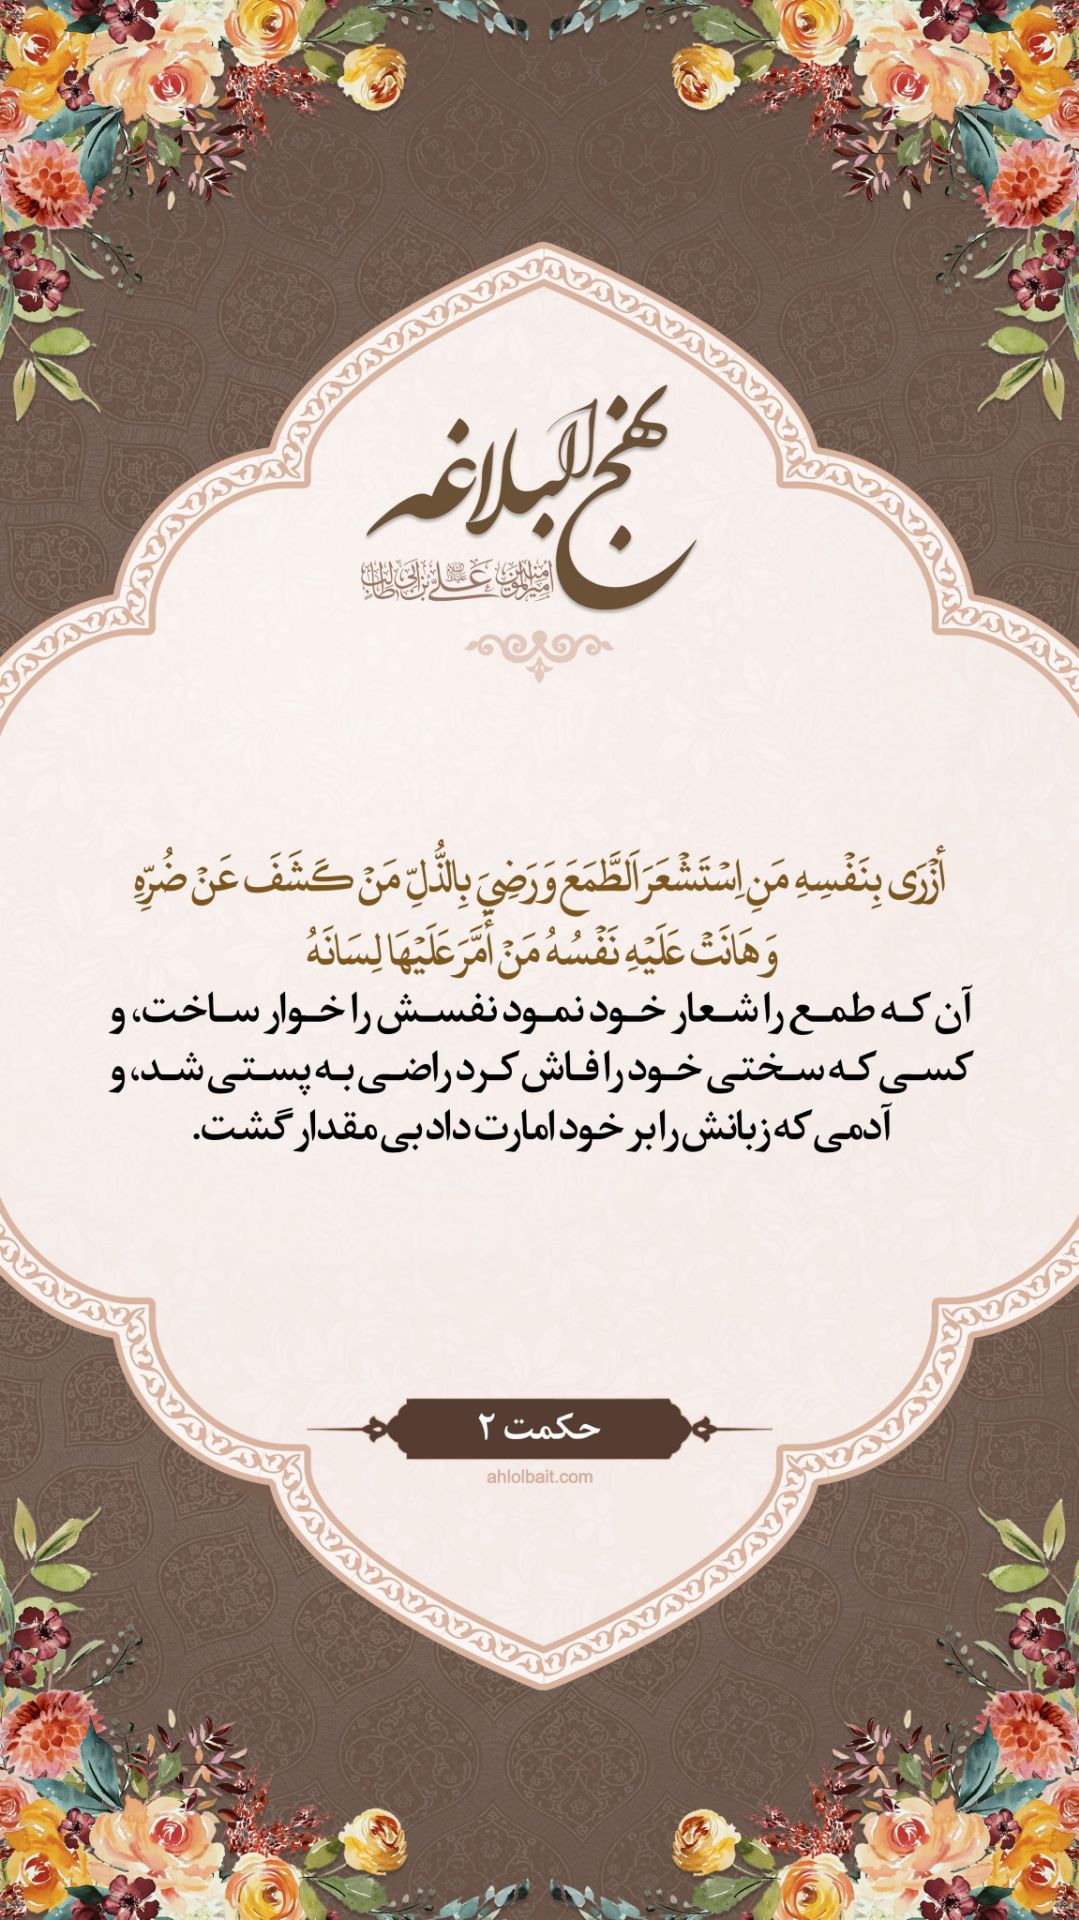 نهج البلاغه
امیرالمومنین علی بن ابی طالب
أَزْرَى بِنَفْسِهِ مَنِ اِسْتَشْعَرَ اَلطَّمَعَ وَ رَضِيَ بِالذُّلِّ مَنْ كَشَفَ عَنْ ضُرِّهِ
وَ هَانَتْ عَلَيْهِ نَفْسُهُ مَنْ أَمَّرَ عَلَيْهَا لِسَانَهُ
آن که طمع را شعار خود نمود نفسش را خوار ساخت، و
کسی که سختی خود را فاش کرد راضی به پستی شد، و
آدمی که زبانش را بر خود امارت داد بی مقدار گشت.
حکمت ۲
ahlolbait.com